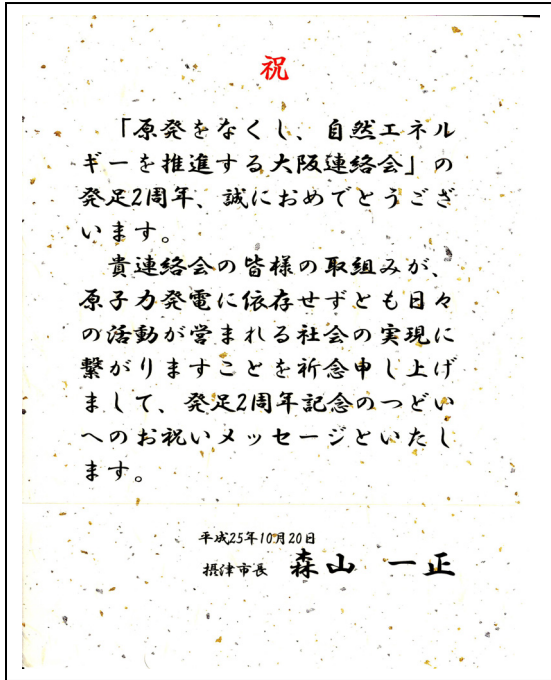 祝
「原発をなくし、自然エネル
ギーを推進する大阪連絡会」の
発足2周年、誠におめでとうござ
います。
貴連絡会の皆様の取組みが、
原子力発電に依存せずとも日々
の活動が営まれる社会の実現に
繋がりますことを祈念申し上げ
まして、発足2周年記念のつどい
へのお祝いメッセージといたし
ます。
平成25年10月20日
摂津市長 森山 一正